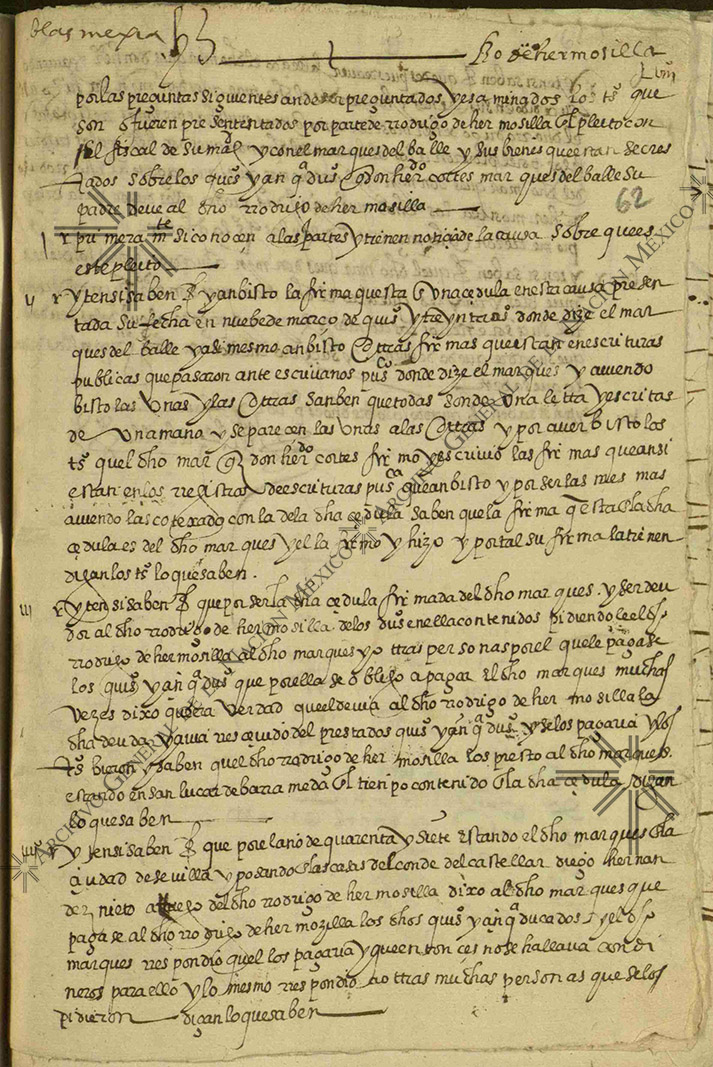 blas mexia Ro de hermosilla
lviii
por las preguntas siguientes an de ser preguntados y esaminados los tsº que
son o fueren presententados por parte de rrodrigo de hermosilla en el pleito con
el fiscal de su magt y con el marques del balle y sus bienes que estan secres
tados sobre los quisº y cinqta dusº que don herdo cortes marques del balle su
padre deve al dho rrodrigo de hermosilla
62
I yprimeramte si conocen a las partes y tienen noticia de la causa sobre que es
este pleito
ii yten si saben q y an bisto la firma questa en una cedula en esta causa presen
tada su fecha en nuebe de março de quisº y treynta años donde dize el mar
ques del balle y asi mesmo an bisto otras firmas que estan en escrituras
publicas que pasaron ante escrivanos pucos donde dize el marques y aviendo
bisto las unas y las otras sanben que todas son de una letra y escritas
de una mano y se parecen las unas a las otras y por aver bisto los
tsº quel dho marq don herdo cortes firmo y escrivio las firmas que ansi
estan en los rregistros de escrituras pucas que an bisto y por ser las mesmas
aviendo las cotexado con la de la dha cedula saben que la firma q esta en la dha
cedula es del dho marques y el la firmo y hizo y por tal su firma la tienen
digan los tsº lo que saben.
iii yten si saben q que por ser la dha cedula firmada del dho marques. y ser deu
dor al dho rrodrigo de hermosilla de los dusº en ella contenidos pidiendole el dho
rrodrigo de hermosilla al dho marques y otras personas por el que le pagase
los quisº y cinqta dusº que por ella se obligo a pagar el dho marques muchas
vezes dixo quera verdad que el devia al dho rodrigo de hermosilla la
dha deuda y avia rrescevido del prestados quisº y cinqta dusº y se los pagaria y los
tsº bieron y saben quel dho rrodrigo de hermosilla los presto al dho marques
estando en san lucar de barrameda en el tienpo contenido en la dha cedula digan
lo que saben
iiii yten si saben q que por el año de quarenta y siete estando el dho marques en la
ciudad de sevilla y posando en las casas del conde del castellar diego hernan
dez nieto a ruego del dho rrodrigo de hermosilla dixo al dho marques que
pagase al dho rrodrigo de hermozilla los dhos quisº y cinqta ducados y el dho
marques rrespondio quel los pagaria y que entonces no se hallava con di
neros para ello y lo mesmo rrespondio a otras muchas personas que se los
pidieron digan lo que saben
ARCHIVO GENERAL DE LA NACIÓN MÉXICO